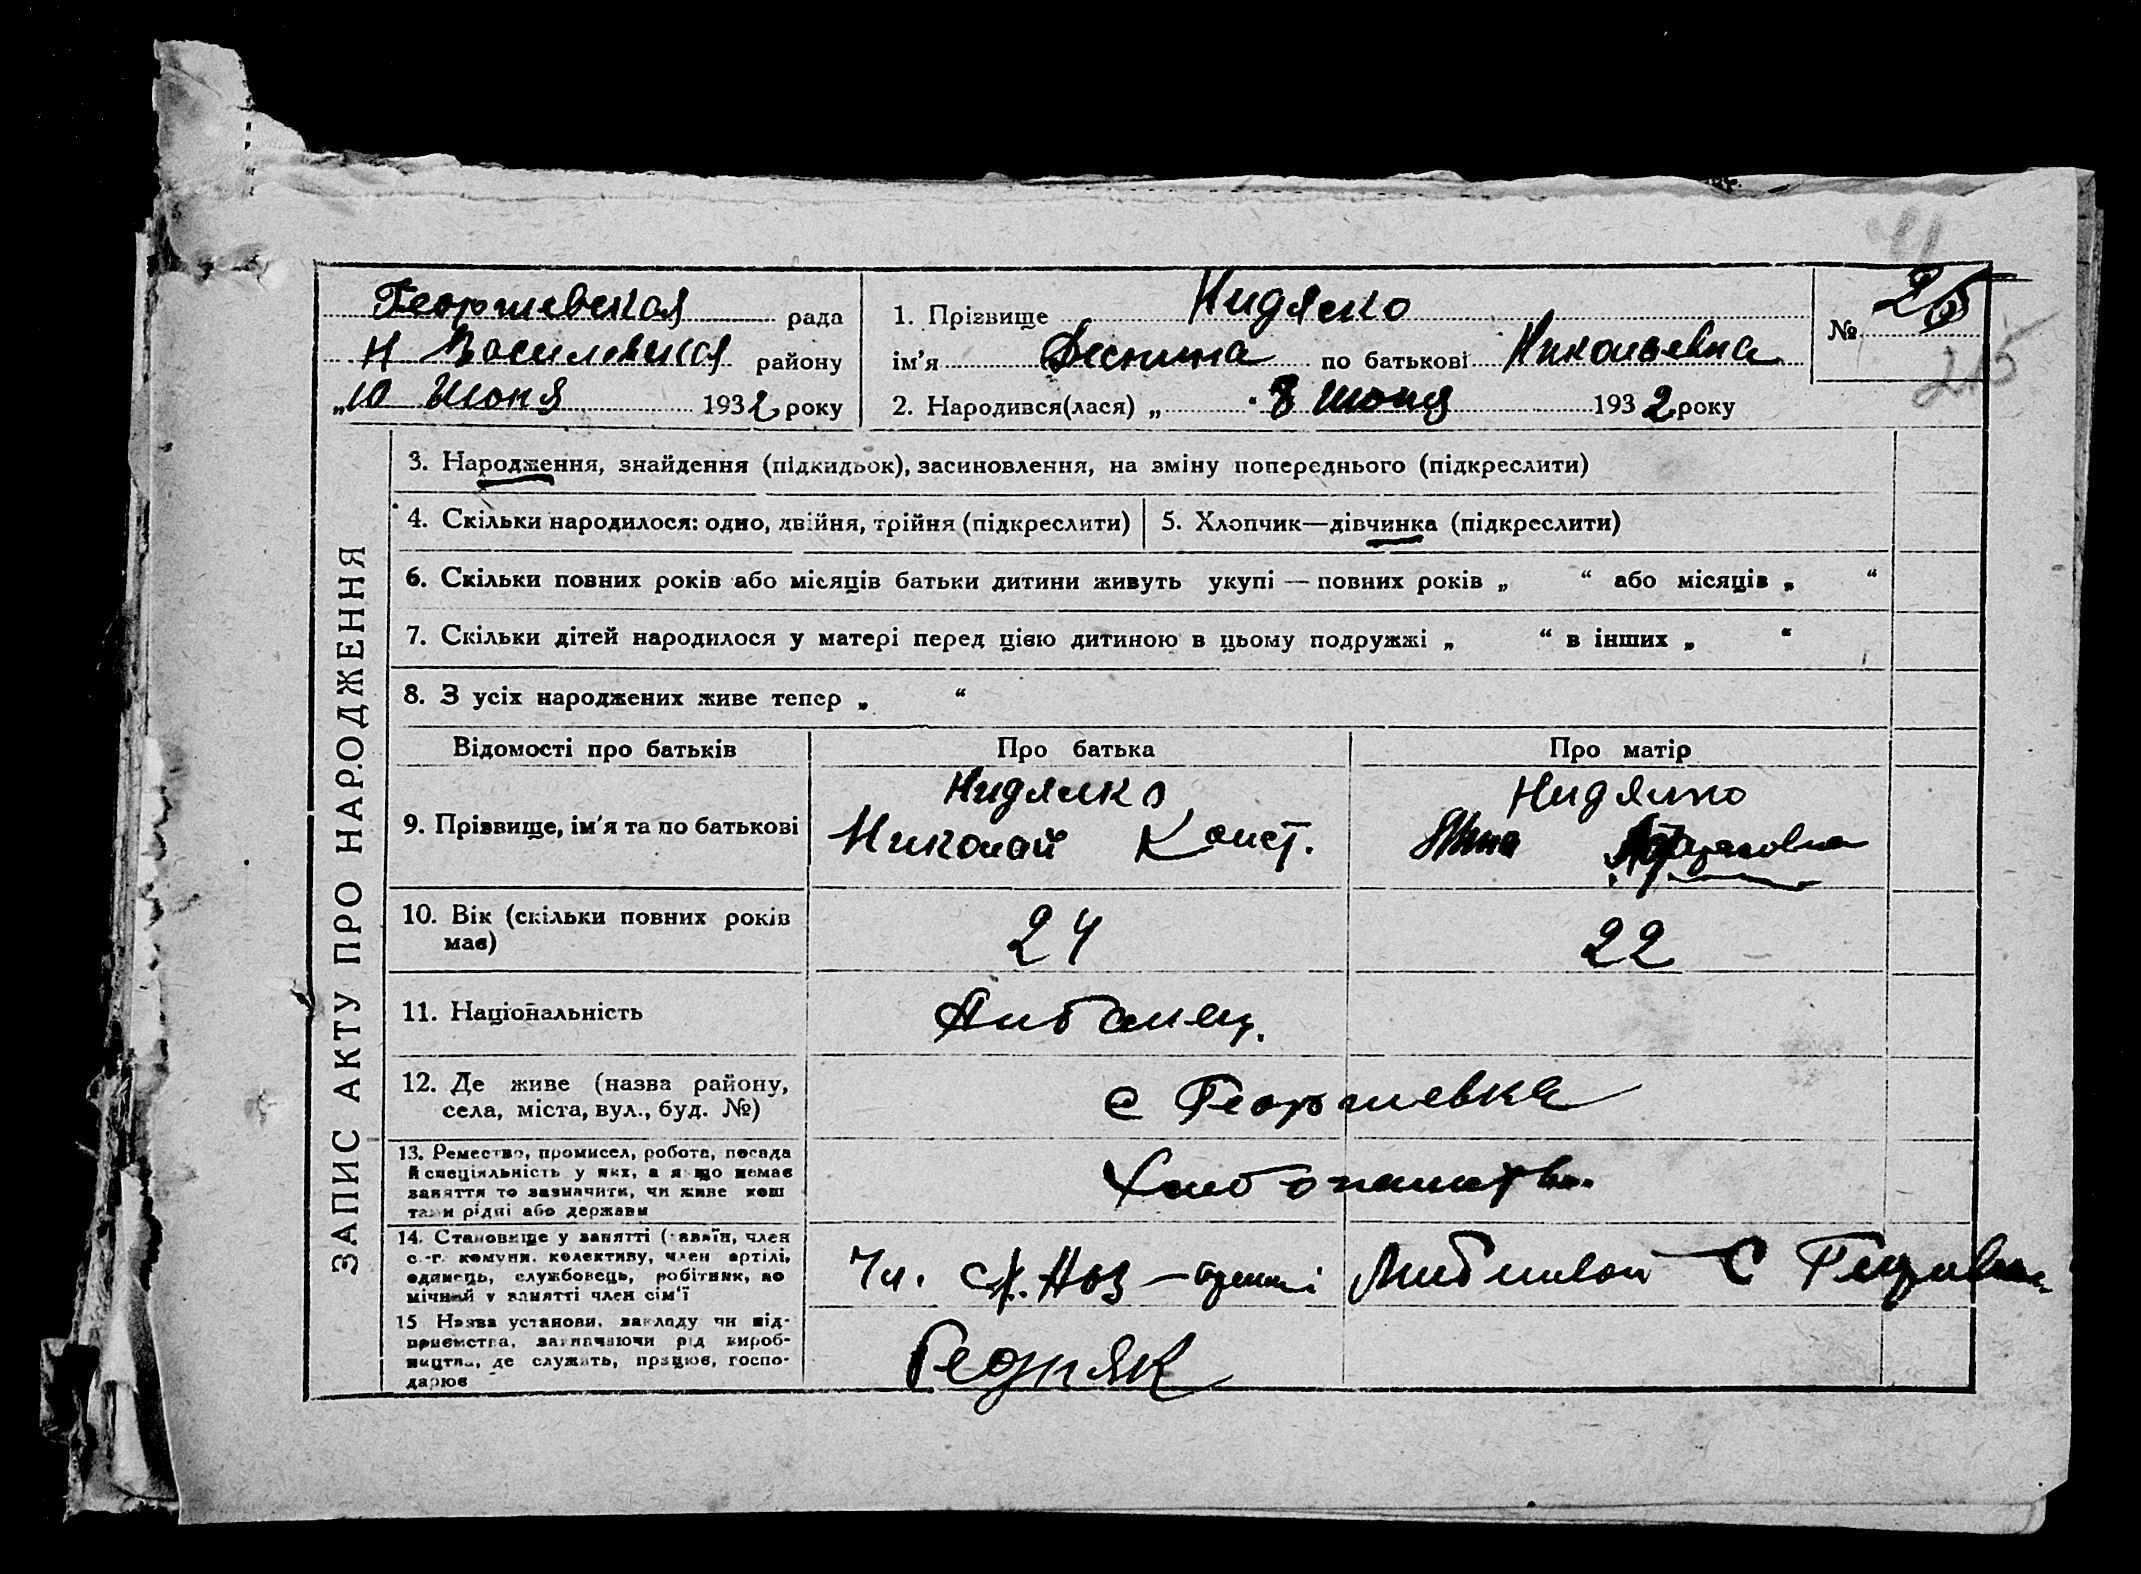 Георгиевская рада
Н Василевская району
„10 Июня 1932 року
1. Прізвище Нидялко
ім’я по батькові Николаевна
2. Народився(лася) „ 8 Июня 1932 року
№ 25
25
ЗАПИС АКТУ ПРО НАРОДЖЕННЯ
3. Народження, знайдення (підкидьок), засиновлення, на зміну попереднього (підкреслити)
4. Скільки народилося: одно, двійня, трійня (підкреслити)
5. Хлопчик—дівчинка (підкреслити)
6. Скільки повних років або місяців батьки дитини живуть укупі — повних років „ “ або місяців „ “
7. Скільки дітей народилося у матері перед цією дитиною в цьому подружжі „ “ в інших „ “
8. З усіх народжених живе тепер „ “
Відомості про батьків
Про батька
Про матір
9. Прізвище, ім’я та по батькові
Нидялко
Николай Конст.
Нидялко
10. Вік (скільки повних років
має)
24
22
11. Національність
12. Де живе (назва району,
села, міста, вул., буд. №)
с Георгиевка
13. Ремество, промисел, робота, посада
й спеціяльність у них, а якщо немає
заняття то зазначити, чи живе кош
тами рідні або держави
Хлебопашество
14. Становище у занятті (хазяїн, член
с.-г. комуни, колективу, член артілі,
одинець, службовець, робітник, по
мічний у занятті член сім’ї
Чл.
15 Назва установи, закладу чи під-
приємства, зазначаючи рід вироб-
ництва, де служить, працює, госпо-
дарює
Бедняк